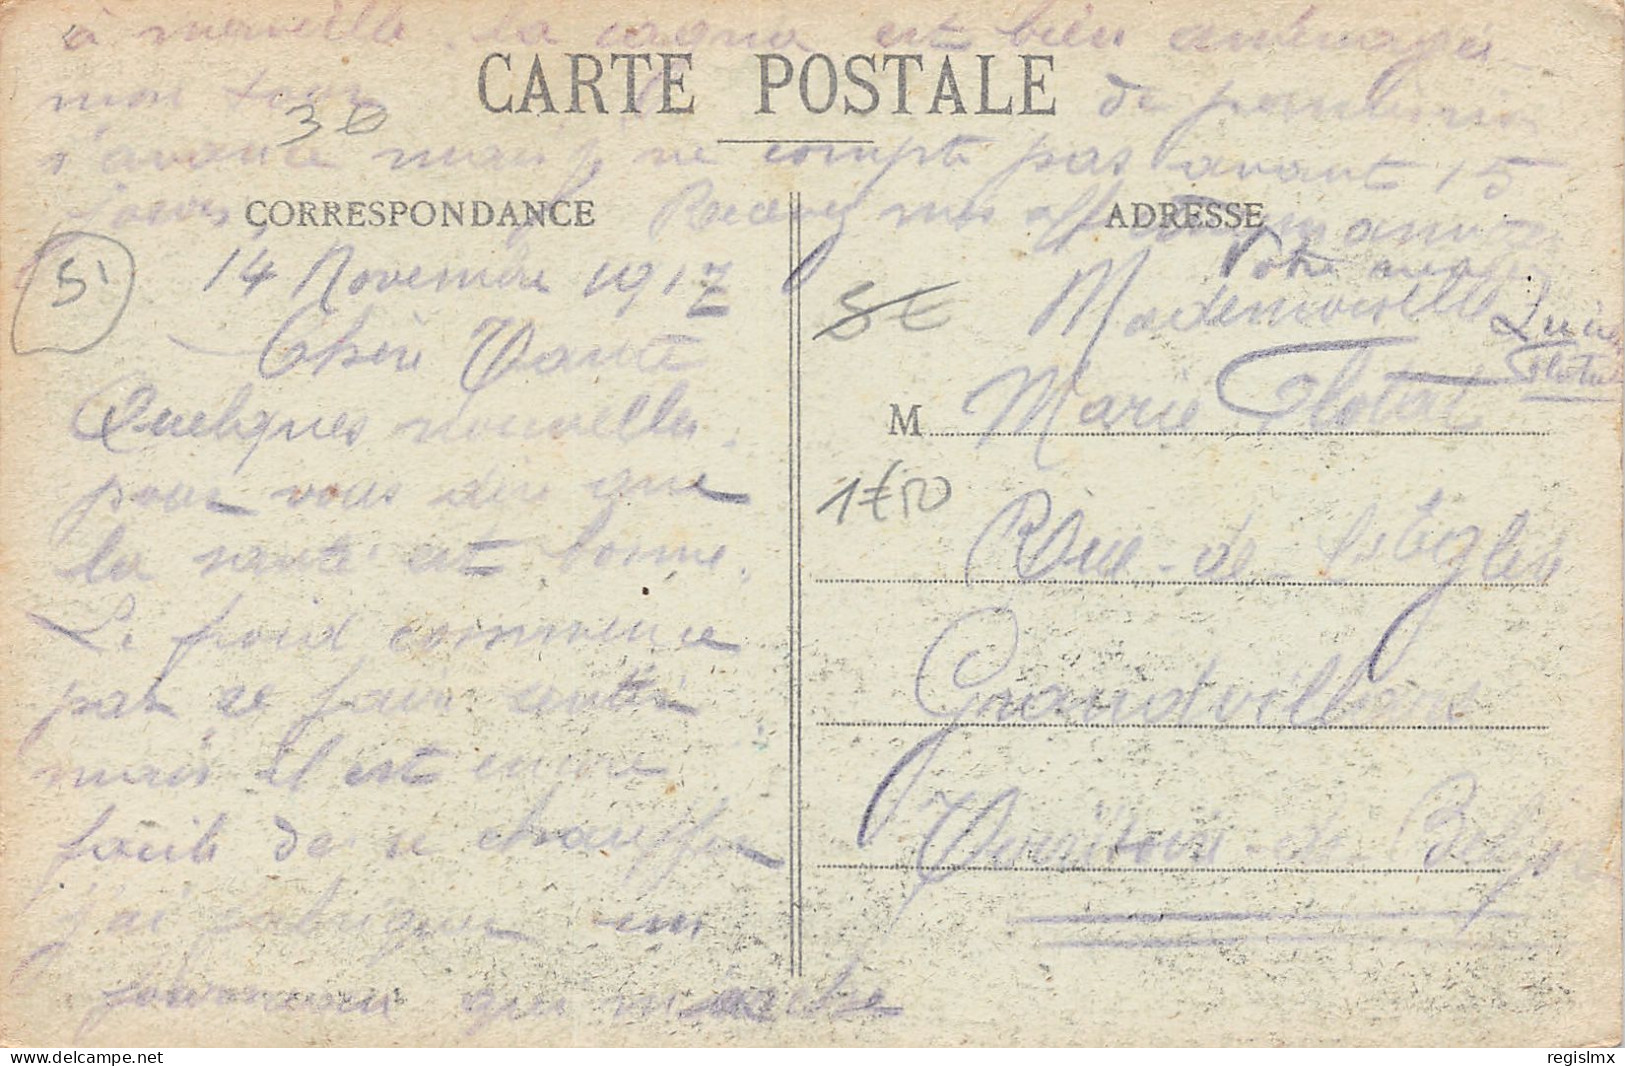 à merveille. la cagna est bien aménagée
CARTE POSTALE
mon tour de permission
s'avance mais je ne compte pas avant 15
jours Recevez mes affectueux
CORRESPONDANCE
ADRESSE
Votre neveu
14 Novembre 1917
Chère Tante
Quelques nouvelles
pour vous dire que
la santé est bonne.
Le froid commence
par se faire sentir
mais il est encore
facile de se chauffer
j'ai fabriquer un
fourneau qui marche
Mademoiselle
M Marie Flotat
Rue de L'Eglise
Grandvillars
Territoire de Belfort
30
51
5€
1€50
delcampe.net
regislmx